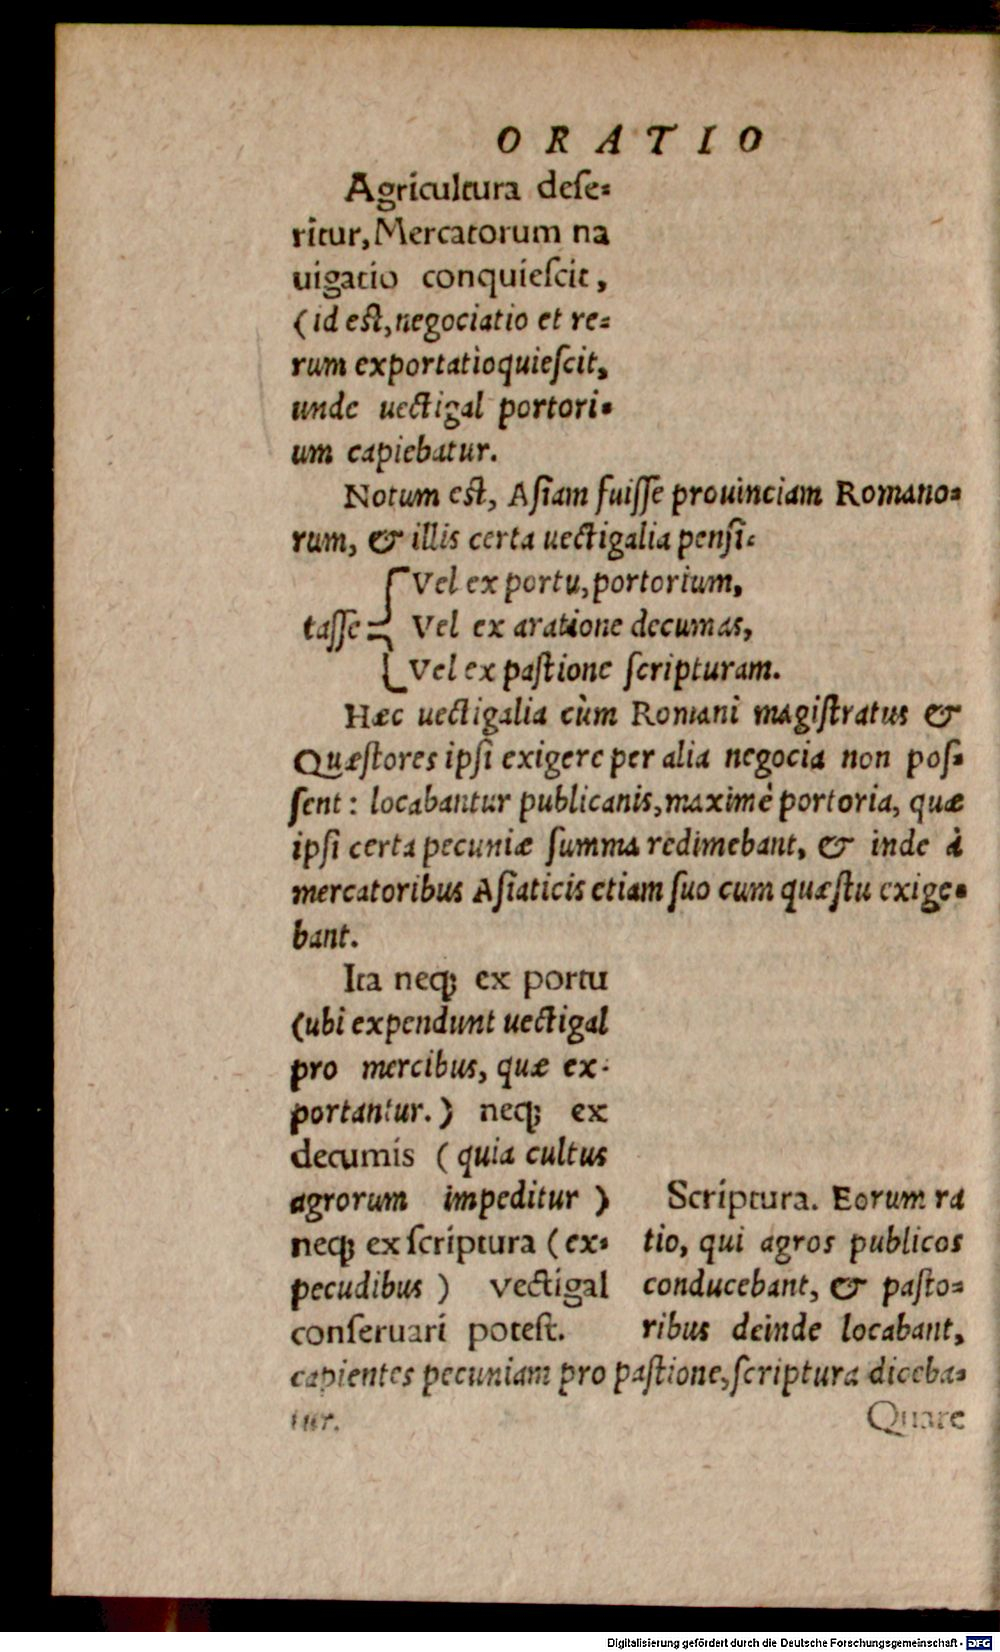 ORATIO
Agricultura dese=
ritur, Mercatorum na
uigatio conquiescit,
(id est, negociatio et re=
rum exportatio quiescit,
unde uectigal portori=
um capiebatur.
Notum est, Asiam fuisse prouinciam Romano=
rum, & illis certa uectigalia pensi=
Vel ex portu, portorium,
tasse Vel ex aratione decumas,
Vel ex pastione scripturam.
Hæc uectigalia cùm Romani magistratus &
Quæstores ipsi exigere per alia negocia non pos=
sent: locabantur publicanis, maximè portoria, quæ
ipsi certa pecuniæ summa redimebant, & inde à
mercatoribus Asiaticis etiam suo cum quæstu exige=
bant.
Ita neq; ex portu
(ubi expendunt uectigal
pro mercibus, quæ ex=
portantur.) neq; ex
decumis (quia cultus
agrorum impeditur)
neq; ex scriptura (ex=
pecudibus) vectigal
conseruari potest.
Scriptura. Eorum ra
tio, qui agros publicos
conducebant, & pasto=
ribus deinde locabant,
capientes pecuniam pro pastione, scriptura diceba=
tur.
Quare
Digitalisierung gefördert durch die Deutsche Forschungsgemeinschaft - DFG